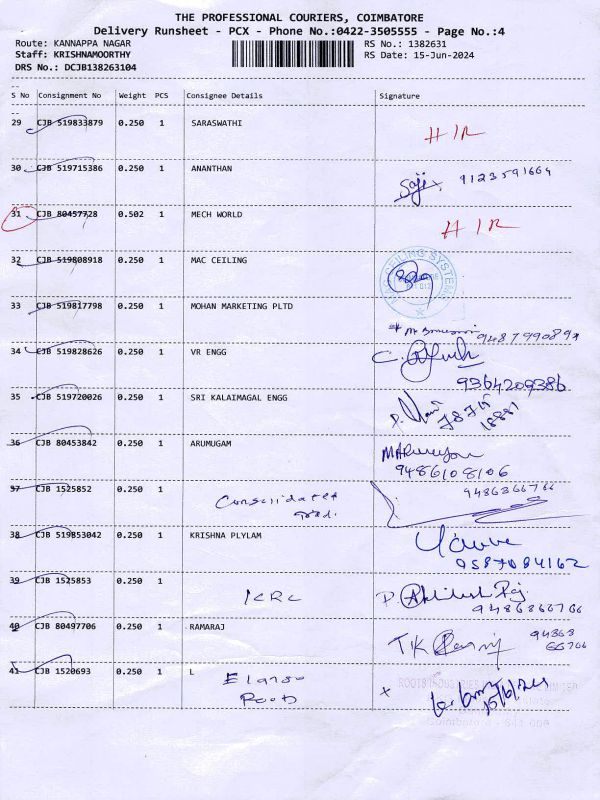 THE PROFESSIONAL COURIERS, COIMBATORE
Delivery Runsheet - PCX - Phone No.:0422-3505555 - Page No.:4
Route: KANNAPPA NAGAR RS No.: 1382631
Staff: KRISHNAMOORTHY RS Date: 15-Jun-2024
DRS No.: DCJB138263104
S No Consignment No Weight PCS Consignee Details Signature
29 CJB 519833879 0.250 1 SARASWATHI H I R
30 CJB 519715386 0.250 1 ANANTHAN Saji 9123591664
31 CJB 80457728 0.502 1 MECH WORLD H I R
32 CJB 519808918 0.250 1 MAC CEILING CEILING SYSTEMS
33 CJB 519817798 0.250 1 MOHAN MARKETING PLTD
34 CJB 519828626 0.250 1 VR ENGG 9364209386
35 CJB 519720026 0.250 1 SRI KALAIMAGAL ENGG
36 CJB 80453842 0.250 1 ARUMUGAM 9486108106
37 CJB 1525852 0.250 1 Consolidated 9486366766
38 CJB 519853042 0.250 1 KRISHNA PLYLAM 9587084162
39 CJB 1525853 0.250 1 9486366766
40 CJB 80497706 0.250 1 RAMARAJ TK 94863 66766
41 CJB 1520693 0.250 1 L 15/6/24